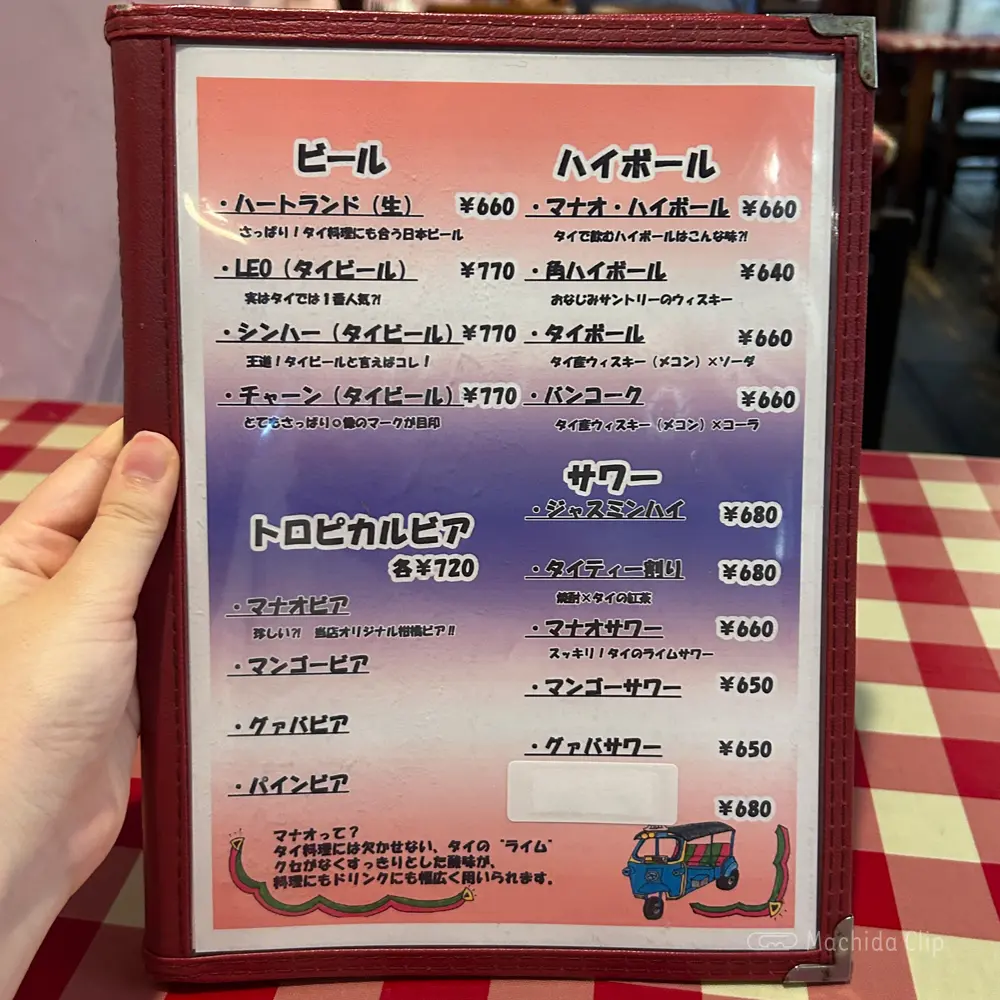 ビール
・ハートランド（生） ¥660
さっぱり！タイ料理にも合う日本ビール
・LEO（タイビール） ¥770
実はタイでは1番人気?!
・シンハー（タイビール） ¥770
王道！タイビールと言えばコレ！
・チャーン（タイビール） ¥770
とてもさっぱり◎像のマークが目印
トロピカルビア
各¥720
・マナオビア
珍しい?! 当店オリジナル柑橘ビア!!
・マンゴービア
・グァバビア
・パインビア
ハイボール
・マナオ・ハイボール ¥660
タイで飲むハイボールはこんな味?!
・角ハイボール ¥640
おなじみサントリーのウィスキー
・タイボール ¥660
タイ産ウィスキー（メコン）×ソーダ
・バンコーク ¥660
タイ産ウィスキー（メコン）×コーラ
サワー
・ジャスミンハイ ¥680
・タイティー割り ¥680
焼酎×タイの紅茶
・マナオサワー ¥660
スッキリ！タイのライムサワー
・マンゴーサワー ¥650
・グァバサワー ¥650
¥680
マナオって？
タイ料理には欠かせない、タイの"ライム"
クセがなくすっきりとした酸味が、
料理にもドリンクにも幅広く用いられます。
Machida Clip